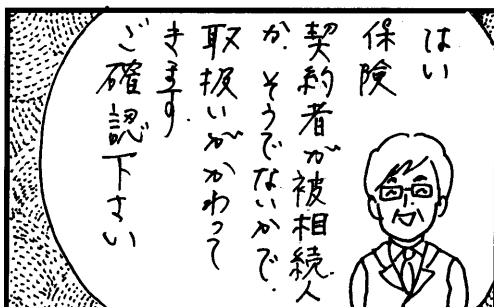 はい
保険
契約者が被相続人
か、そうでないかで、
取扱いがかわって
きます。
ご確認下さい